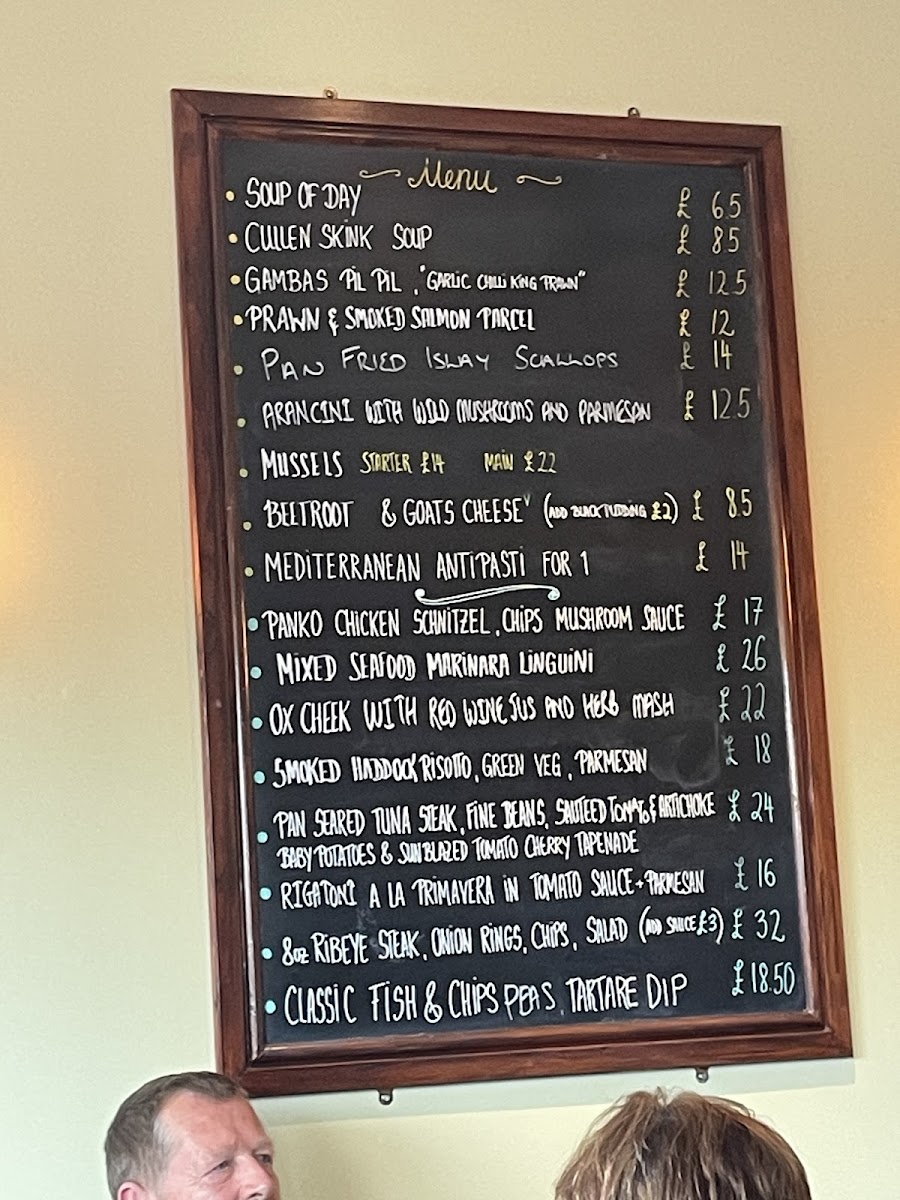 Menu
• SOUP OF DAY £ 6.5
• CULLEN SKINK SOUP £ 8.5
• GAMBAS PIL PIL, "GARLIC CHILLI KING PRAWN" £ 12.5
• PRAWN & SMOKED SALMON PARCEL £ 12
• PAN FRIED ISLAY SCALLOPS £ 14
• ARANCINI WITH WILD MUSHROOMS AND PARMESAN £ 12.5
• MUSSELS STARTER £14 MAIN £22
• BEETROOT & GOATS CHEESE V (ADD BLACK PUDDING £2) £ 8.5
• MEDITERRANEAN ANTIPASTI FOR 1 £ 14
• PANKO CHICKEN SCHNITZEL, CHIPS MUSHROOM SAUCE £ 17
• MIXED SEAFOOD MARINARA LINGUINI £ 26
• OX CHEEK WITH RED WINE JUS AND HERB MASH £ 22
• SMOKED HADDOCK RISOTTO, GREEN VEG, PARMESAN £ 18
• PAN SEARED TUNA STEAK, FINE BEANS, SAUTEED TOMATO & ARTICHOKE £ 24
BABY POTATOES & SUNBLAZED TOMATO CHERRY TAPENADE
• RIGATONI A LA PRIMAVERA IN TOMATO SAUCE + PARMESAN £ 16
• 8oz RIBEYE STEAK, ONION RINGS, CHIPS, SALAD (ADD SAUCE £3) £ 32
• CLASSIC FISH & CHIPS PEAS, TARTARE DIP £18.50